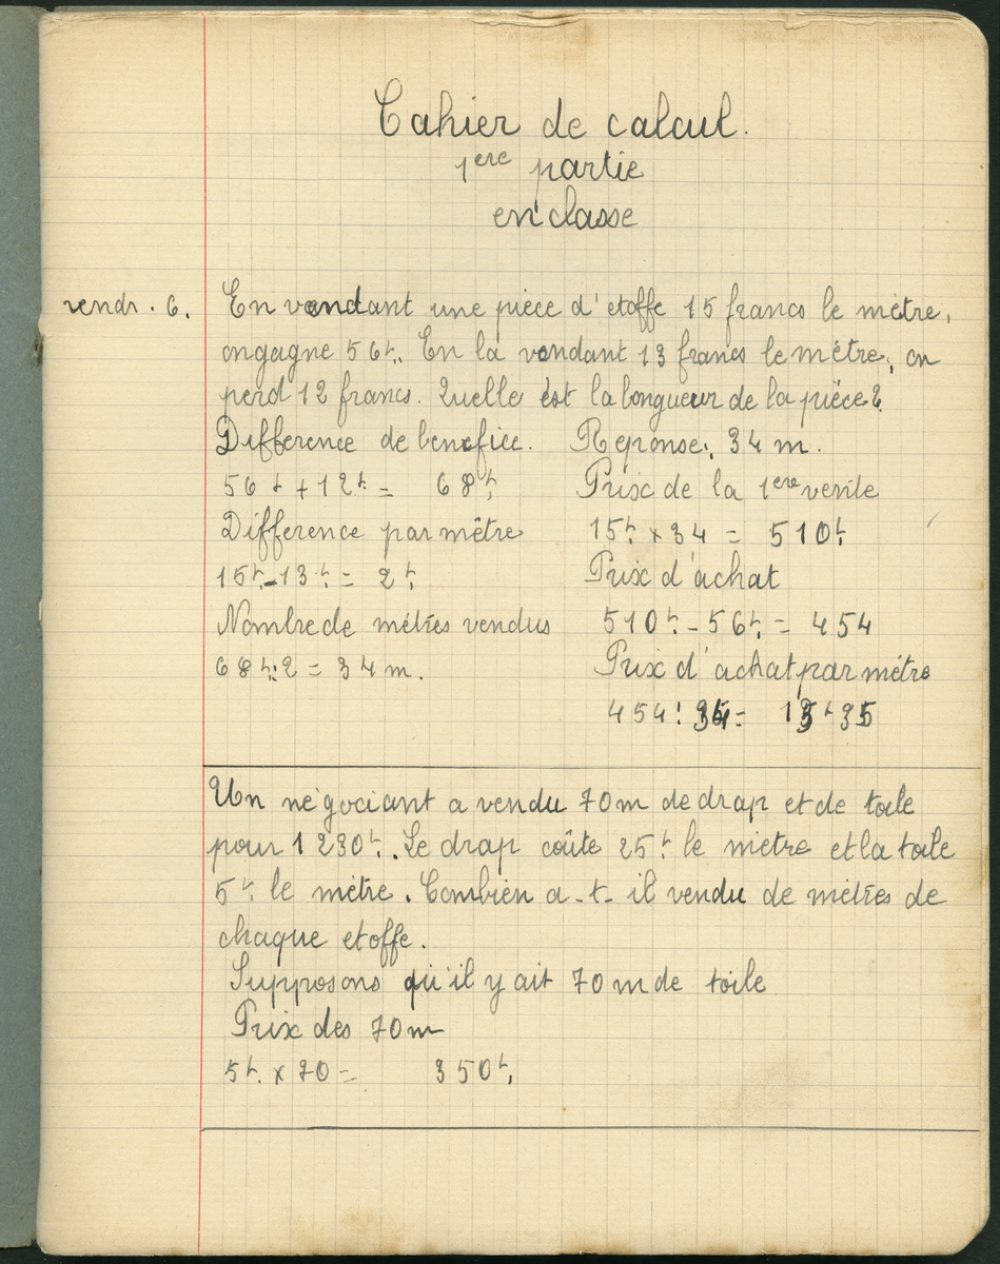 Cahier de calcul.
1ere partie
en classe
vendr. 6.
En vendant une pièce d'etoffe 15 francs le mètre,
on gagne 56f. En la vendant 13 francs le mètre, on
perd 12 francs. Quelle est la longueur de la pièce?
Difference de benefice.
56f + 12f = 68f.
Différence par mètre
15f. - 13f. = 2f.
Nombre de mètres vendus
68f : 2 = 34 m.
Reponse: 34 m.
Prix de la 1ere vente
15f. x 34 = 510f.
Prix d'achat
510f. - 56f. = 454
Prix d'achat par mètre
454 : 34 = 13f35
Un négociant a vendu 70m de drap et de toile
pour 1 230f. Le drap coûte 25f. le mètre et la toile
5f. le mètre. Combien a-t-il vendu de mètres de
chaque etoffe.
Supposons qu'il y ait 70m de toile
Prix des 70m
5f. x 70 = 350f.